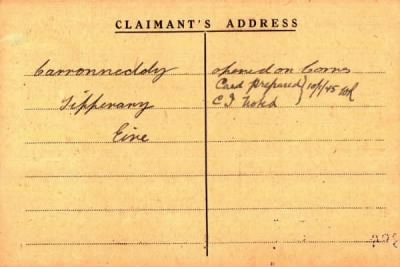 CLAIMANT'S ADDRESS
Carronneddy
Tipperary
Eire
opened on Corres
Card Prepared } 10/1/45
C I noted